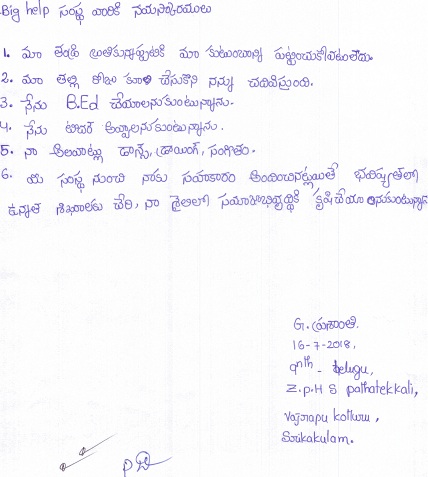 Big help సంస్థ వారికి నమస్కారములు
1. మా తండ్రి బ్రతికున్నప్పటికి మా కుటుంబాన్ని పట్టించుకోవటంలేదు.
2. మా తల్లి రోజు కూలి చేసుకొని నన్ను చదివిస్తుంది.
3. నేను B.Ed చేయాలనుకుంటున్నాను.
4. నేను టిచర్ అవ్వాలనుకుంటున్నాను.
5. నా అలవాట్లు డాన్స్, డ్రాయింగ్, సంగీతం.
6. ఈ సంస్థ నుంచి నాకు సహకారం అందించినట్లయితే భవిష్యత్‌లో
ఉన్నత శిఖరాలకు చేరి, నా శైలిలో సమాజాభివృద్ధికి కృషి చేయా అనుకుంటున్నా
G. ప్రశాంతి.
16-7-2018,
9nth - telugu,
Z.p.H S pathatekkali,
Vajrapu kotturu,
Srikakulam.